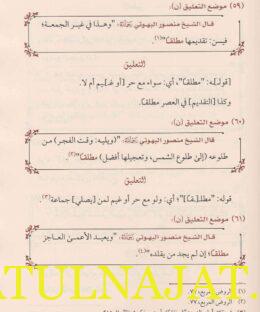 (٥٩) موضع التعليق (ن):
قال الشيخ منصور البهوتي رحمه الله: "وهذا في غير الجمعة؛
فيسن: تقديمها مطلقًا"(١).
التعليق
[قولـ]ـه: "مطلقًا"، أي: سواء مع حر [أو غـ]ـيم أم لا.
وكذا [التقديم] في العصر مطلقًا.
(٦٠) موضع التعليق (ن):
قال الشيخ منصور البهوتي رحمه الله: "(ويليه: وقت الفجر) من
طلوعه (إلى طلوع الشمس، وتعجيلها أفضل) مطلقًا"(٢).
التعليق
قوله: "مطلـ[ـقًا]"؛ أي: ولو مع حر أو غيم لمن [يصلي] جماعة(٣).
(٦١) موضع التعليق (ن):
قال الشيخ منصور البهوتي رحمه الله: "ويعيد الأعمى العاجز
مطلقًا؛ إن لم يجد من يقلده"(٤).
ATULNAJAT.
(١) الروض المربع، ٧٠.
(٢) الروض المربع، ٧٧.